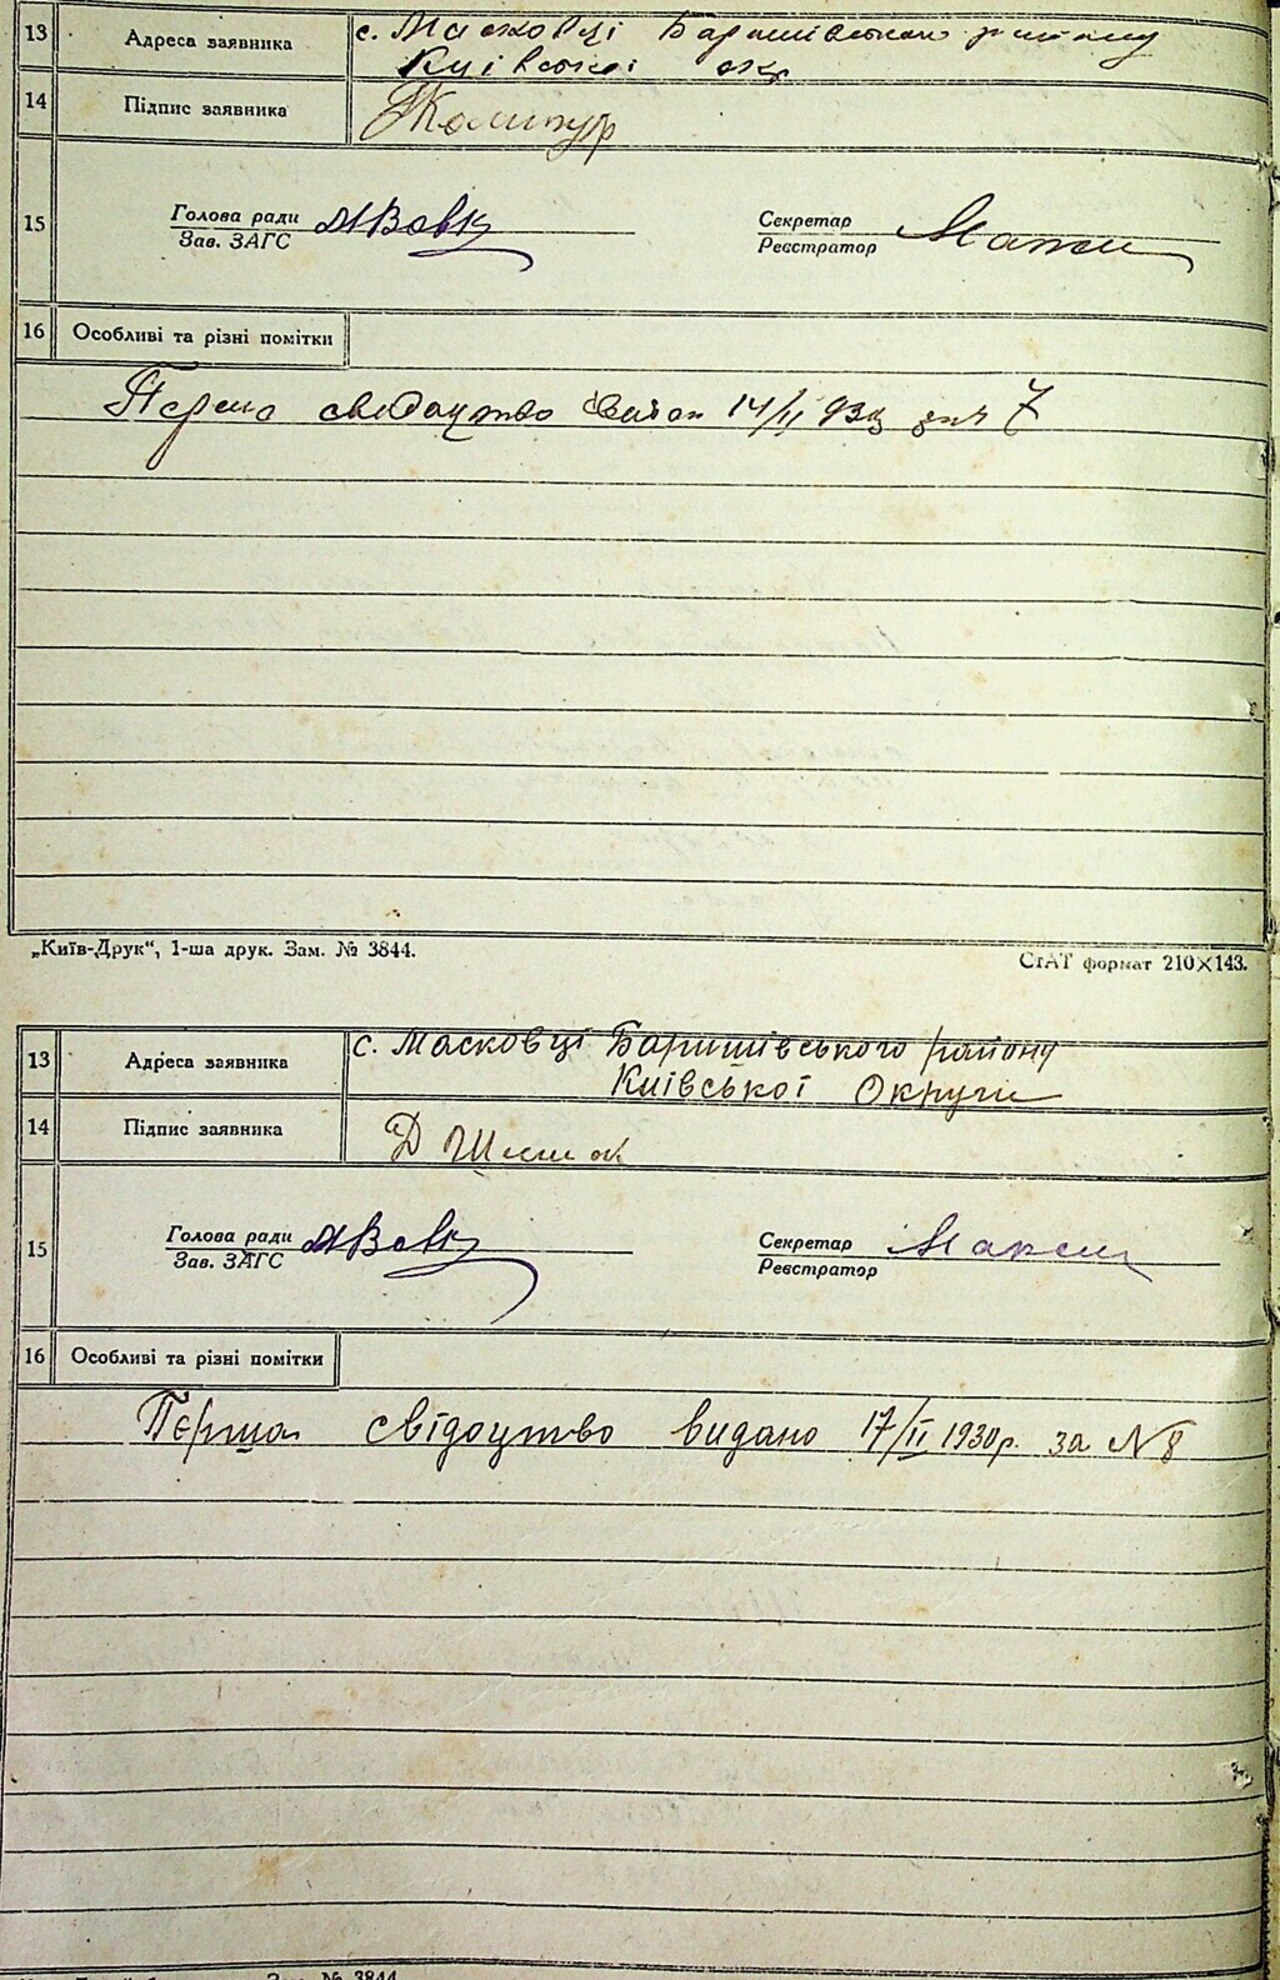 13 Адреса заявника с. Масковці Баришівського району
Київської окр
14 Підпис заявника
15 Голова ради АВовк Секретар
Зав. ЗАГС Реєстратор
16 Особливі та різні помітки
14/II 7
„Київ-Друк“, 1-ша друк. Зам. № 3844.
СтАТ формат 210×143.
13 Адреса заявника с. Масковці Баришівського району
Київської Округи
14 Підпис заявника Д Шестак
15 Голова ради АВовк Секретар
Зав. ЗАГС Реєстратор
16 Особливі та різні помітки
Перша свідоцтво видано 17/II 1930р. за N 8
Зам. № 3844